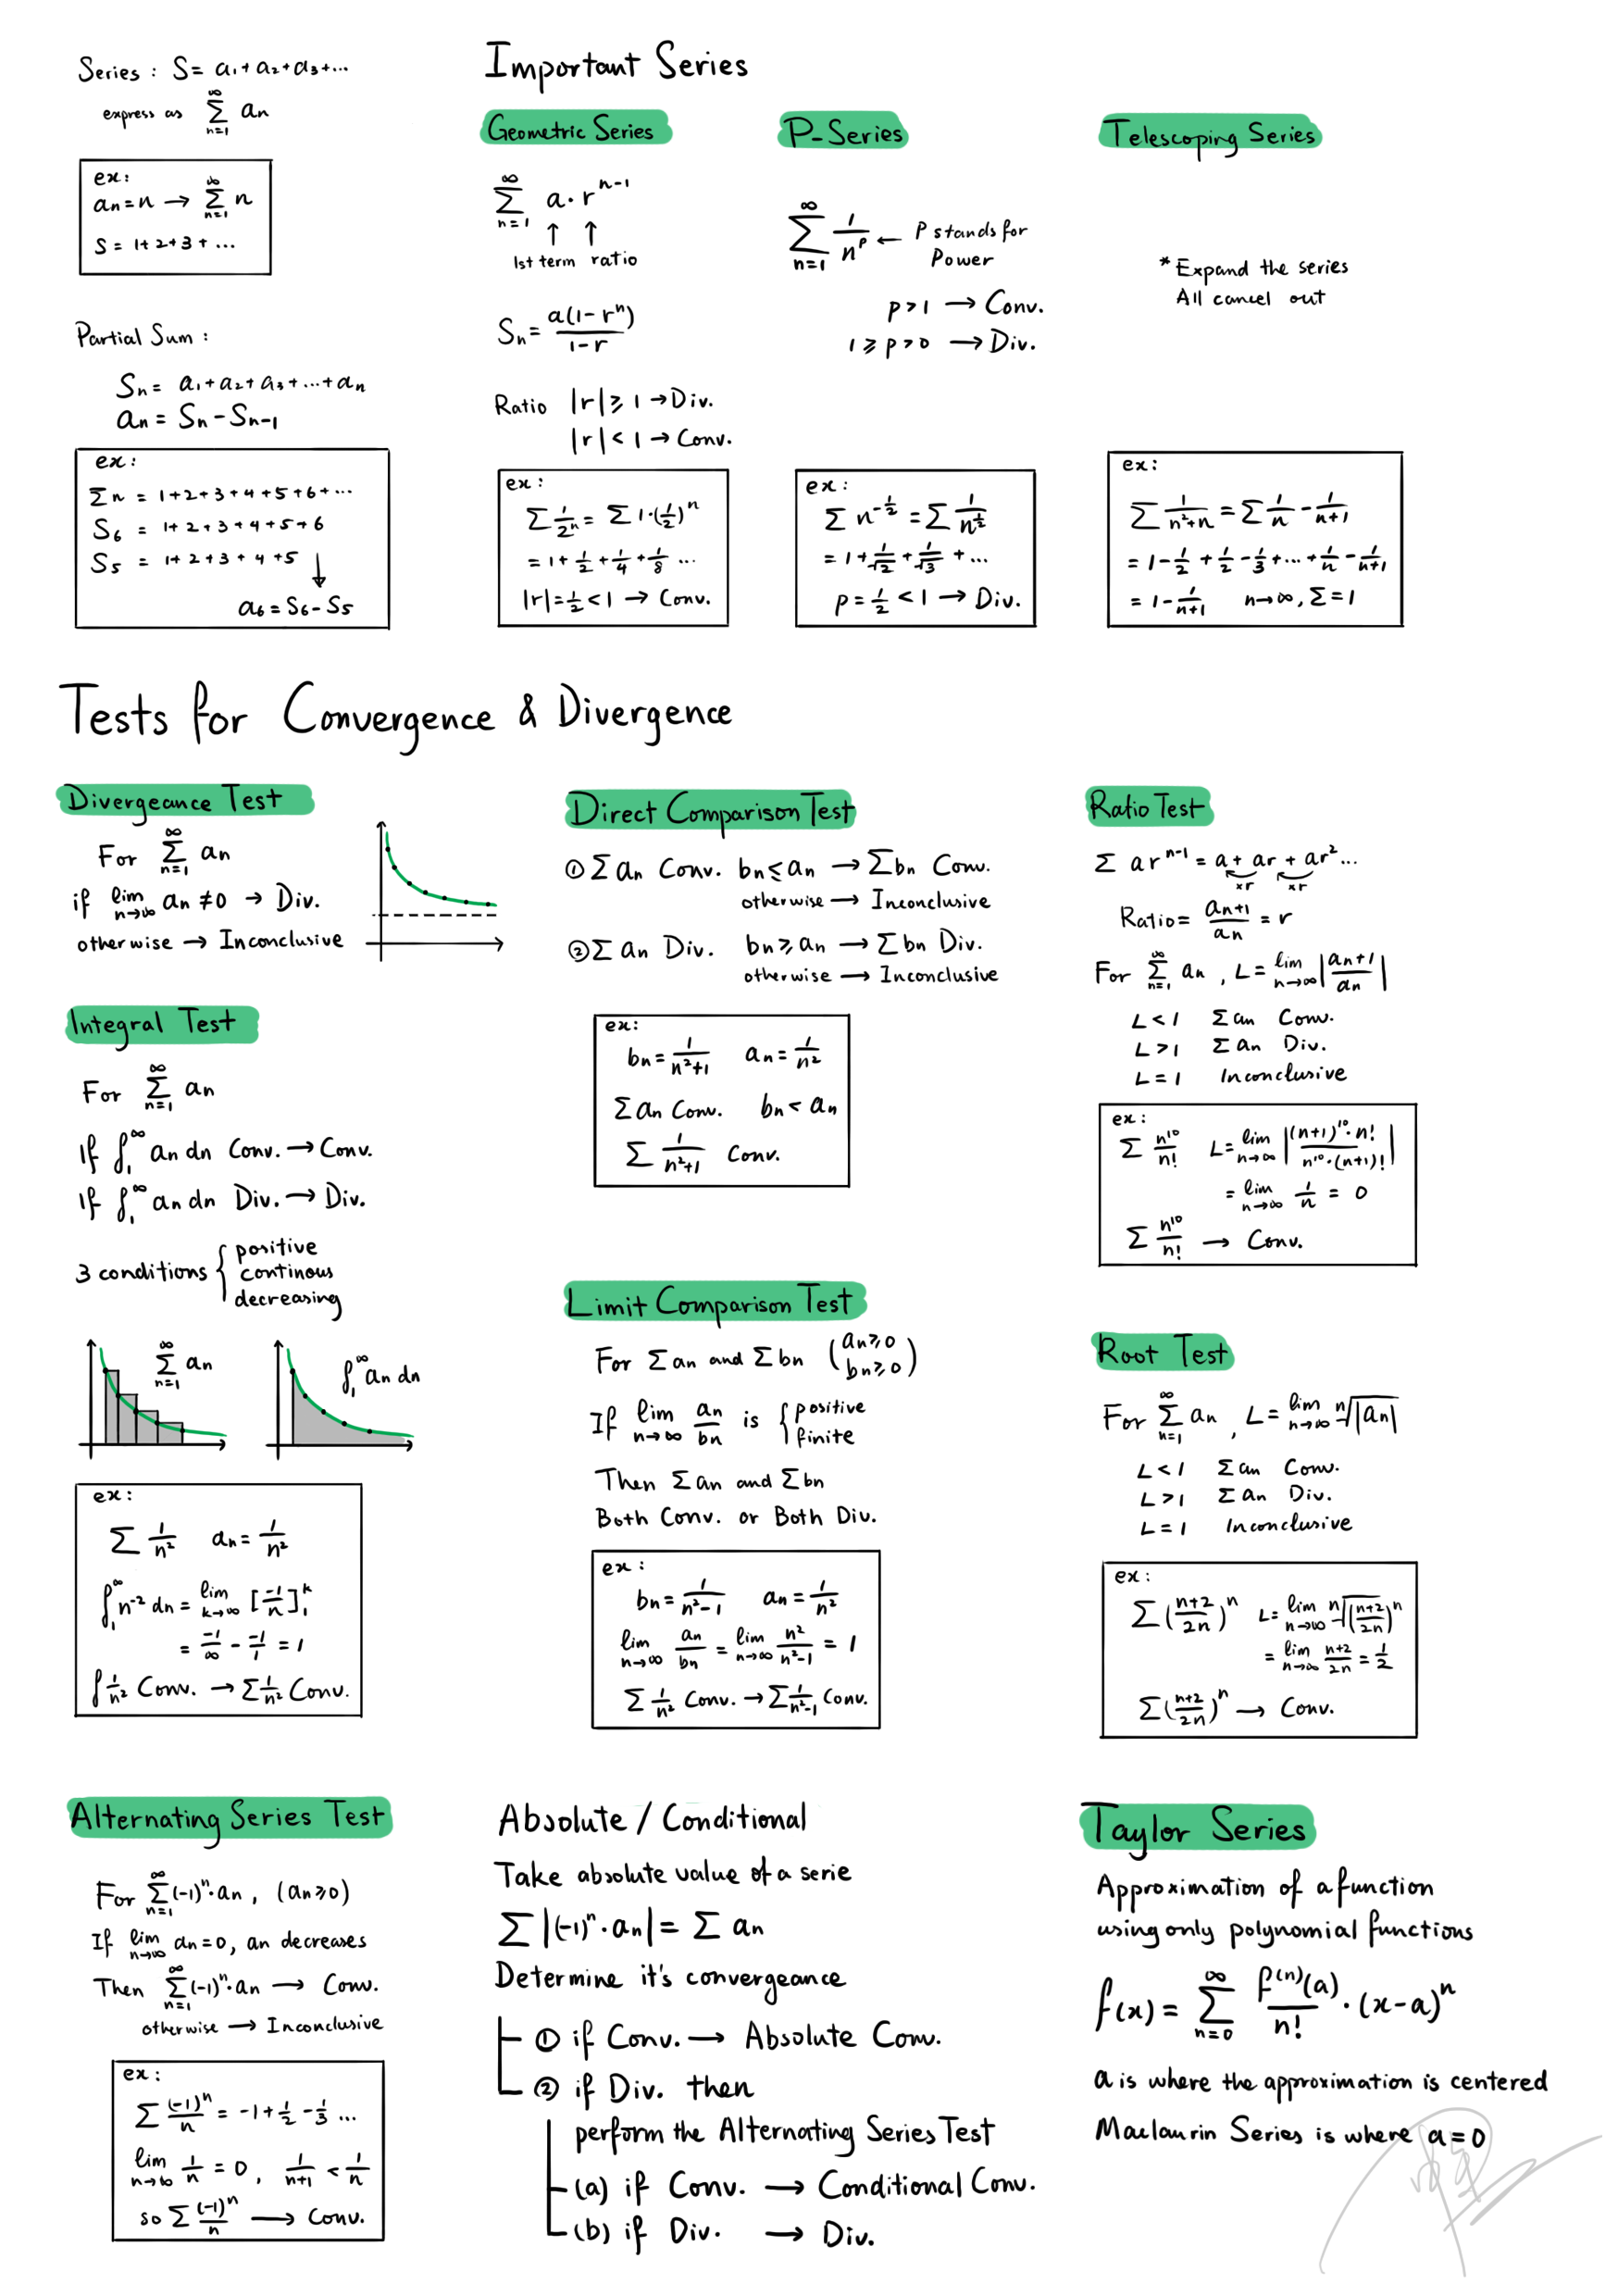 Series : S = a₁ + a₂ + a₃ + ...
express as ∞Σn=1 an
ex:
an = n → ∞Σn=1 n
S = 1+2+3+ ...
Partial Sum :
Sn = a₁ + a₂ + a₃ + ... + an
an = Sn - Sn-1
ex:
Σn = 1+2+3+4+5+6+ ...
S₆ = 1+2+3+4+5+6
S₅ = 1+2+3+4+5
↓
a₆ = S₆ - S₅
Important Series
Geometric Series
∞Σn=1 a · r^n-1
↑ ↑
1st term ratio
Sn = a(1-r^n) / 1-r
Ratio |r| ⩾ 1 → Div.
|r| < 1 → Conv.
ex:
Σ 1/2^n = Σ 1·(1/2)^n
= 1 + 1/2 + 1/4 + 1/8 ...
|r| = 1/2 < 1 → Conv.
P-Series
∞Σn=1 1/n^p ← P stands for
Power
p > 1 → Conv.
1 ⩾ p > 0 → Div.
ex:
Σ n^-1/2 = Σ 1/n^1/2
= 1 + 1/√2 + 1/√3 + ...
p = 1/2 < 1 → Div.
Telescoping Series
* Expand the series
All cancel out
ex:
Σ 1/n²+n = Σ 1/n - 1/n+1
= 1 - 1/2 + 1/2 - 1/3 + ... + 1/n - 1/n+1
= 1 - 1/n+1 n→∞, Σ = 1
Tests for Convergence & Divergence
Divergeance Test
For ∞Σn=1 an
if lim n→∞ an ≠ 0 → Div.
otherwise → Inconclusive
Integral Test
For ∞Σn=1 an
If ∫₁^∞ an dn Conv. → Conv.
If ∫₁^∞ an dn Div. → Div.
3 conditions { positive
continous
decreasing
∞Σn=1 an
∫₁^∞ an dn
ex:
Σ 1/n² an = 1/n²
∫₁^∞ n^-2 dn = lim k→∞ [-1/n]₁^k
= -1/∞ - -1/1 = 1
∫ 1/n² Conv. → Σ 1/n² Conv.
Direct Comparison Test
① Σ an Conv. bn ⩽ an → Σ bn Conv.
otherwise → Inconclusive
② Σ an Div. bn ⩾ an → Σ bn Div.
otherwise → Inconclusive
ex:
bn = 1/n²+1 an = 1/n²
Σ an Conv. bn < an
Σ 1/n²+1 Conv.
Limit Comparison Test
For Σ an and Σ bn (an ⩾ 0
bn ⩾ 0)
If lim n→∞ an/bn is { positive
finite
Then Σ an and Σ bn
Both Conv. or Both Div.
ex:
bn = 1/n²-1 an = 1/n²
lim n→∞ an/bn = lim n→∞ n²/n²-1 = 1
Σ 1/n² Conv. → Σ 1/n²-1 Conv.
Ratio Test
Σ ar^n-1 = a + ar + ar² ...
×r ×r
Ratio = an+1/an = r
For ∞Σn=1 an , L = lim n→∞ |an+1/an|
L < 1 Σ an Conv.
L > 1 Σ an Div.
L = 1 Inconclusive
ex:
Σ n^10/n! L = lim n→∞ |(n+1)^10 · n! / n^10 · (n+1)!|
= lim n→∞ 1/n = 0
Σ n^10/n! → Conv.
Root Test
For ∞Σn=1 an , L = lim n→∞ n√|an|
L < 1 Σ an Conv.
L > 1 Σ an Div.
L = 1 Inconclusive
ex:
Σ (n+2/2n)^n L = lim n→∞ n√(n+2/2n)^n
= lim n→∞ n+2/2n = 1/2
Σ (n+2/2n)^n → Conv.
Alternating Series Test
For ∞Σn=1 (-1)^n · an , (an ⩾ 0)
If lim n→∞ an = 0, an decreases
Then ∞Σn=1 (-1)^n · an → Conv.
otherwise → Inconclusive
ex:
Σ (-1)^n/n = -1 + 1/2 - 1/3 ...
lim n→∞ 1/n = 0, 1/n+1 < 1/n
so Σ (-1)^n/n → Conv.
Absolute / Conditional
Take absolute value of a serie
Σ |(-1)^n · an| = Σ an
Determine it's convergeance
① if Conv. → Absolute Conv.
② if Div. then
perform the Alternating Series Test
(a) if Conv. → Conditional Conv.
(b) if Div. → Div.
Taylor Series
Approximation of a function
using only polynomial functions
f(x) = ∞Σn=0 f^(n)(a)/n! · (x-a)^n
a is where the approximation is centered
Maclaurin Series is where a = 0